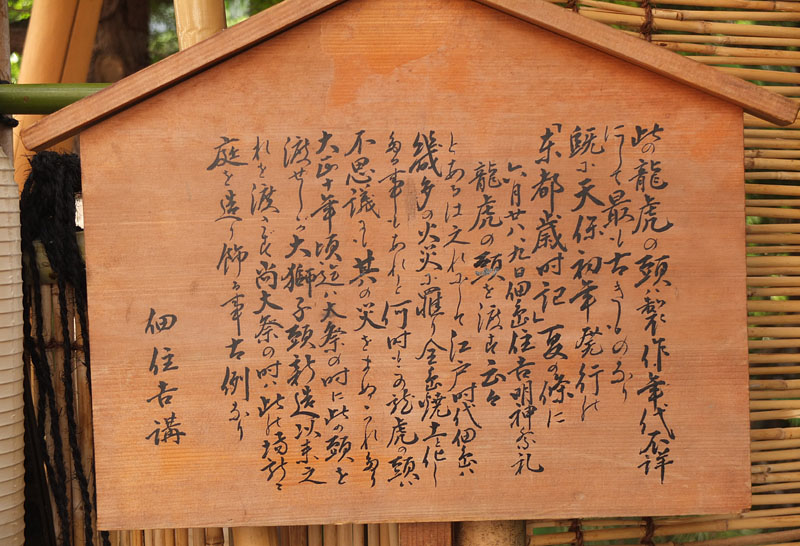 此の龍虎の頭ハ製作年代不詳
にして最も古きものなり
既に天保初年発行の
「東都歳時記」夏の條に
六月廿八、九日佃島住吉明神祭礼
龍虎の頭を渡す云々
とあるは之れにして江戸時代佃島ハ
幾多の火災に罹り全島焼土と化し
たる事もあれど何時もこの龍虎の頭ハ
不思議にも其の災をまぬかれたり
大正十年頃迄ハ大祭の時に此の頭を
渡せしが大獅子頭新造以来之
れを渡さず尚大祭の時ハ此の場所に
庭を造り飾る事古例なり
佃住吉講